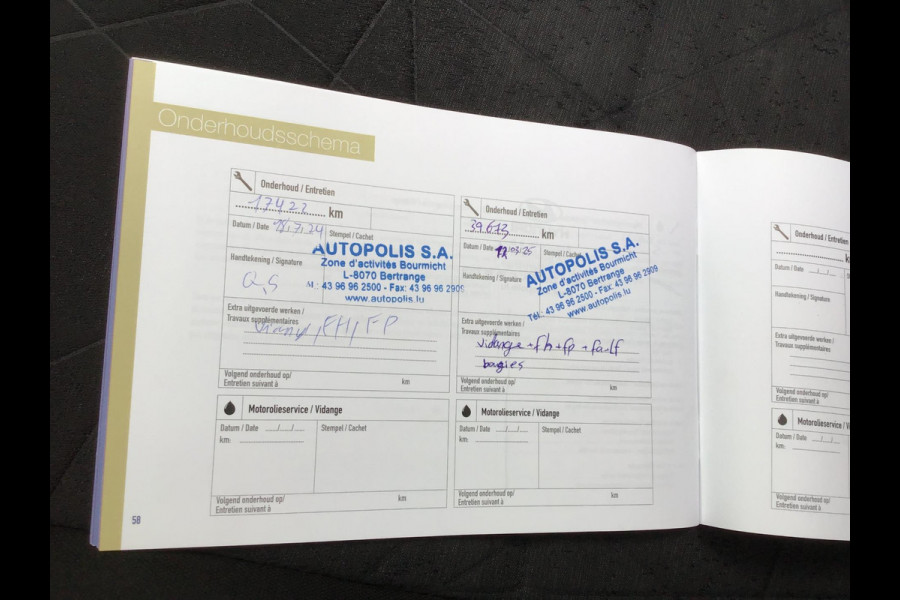 Onderhoudsschema
Onderhoud / Entretien
17422 km
Datum / Date
Stempel / Cachet
AUTOPOLIS S.A.
Zone d'activités Bourmicht
L-8070 Bertrange
: 43 96 96 2500 - Fax: 43 96 96 2909
www.autopolis.lu
Handtekening / Signature
Extra uitgevoerde werken /
Travaux supplémentaires
FH, FP
Volgend onderhoud op/
Entretien suivant à
km
Motorolieservice / Vidange
Datum / Date
Stempel / Cachet
km:
Volgend onderhoud op/
Entretien suivant à
km
58
Onderhoud / Entretien
39.613 km
Datum / Date
Stempel / Cachet
AUTOPOLIS S.A.
Zone d'activités Bourmicht
L-8070 Bertrange
Tél.: 43 96 96 2500 - Fax: 43 96 96 2909
www.autopolis.lu
Handtekening / Signature
Extra uitgevoerde werken /
Travaux supplémentaires
vidange + fh + fp +
Volgend onderhoud op/
Entretien suivant à
km
Motorolieservice / Vidange
Datum / Date
Stempel / Cachet
km:
Volgend onderhoud op/
Entretien suivant à
km
Onderhoud / Entretien
Datum / Date
Handtekening / Signature
Extra uitgevoerde werken /
Travaux supplémentaires
Volgend onderhoud op/
Entretien suivant à
Motorolieservice / Vi
Datum / Date
km:
Volgend onderhoud op/
Entretien suivant à